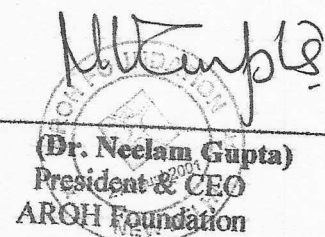 (Dr. Neelam Gupta)
President & CEO
AROH Foundation